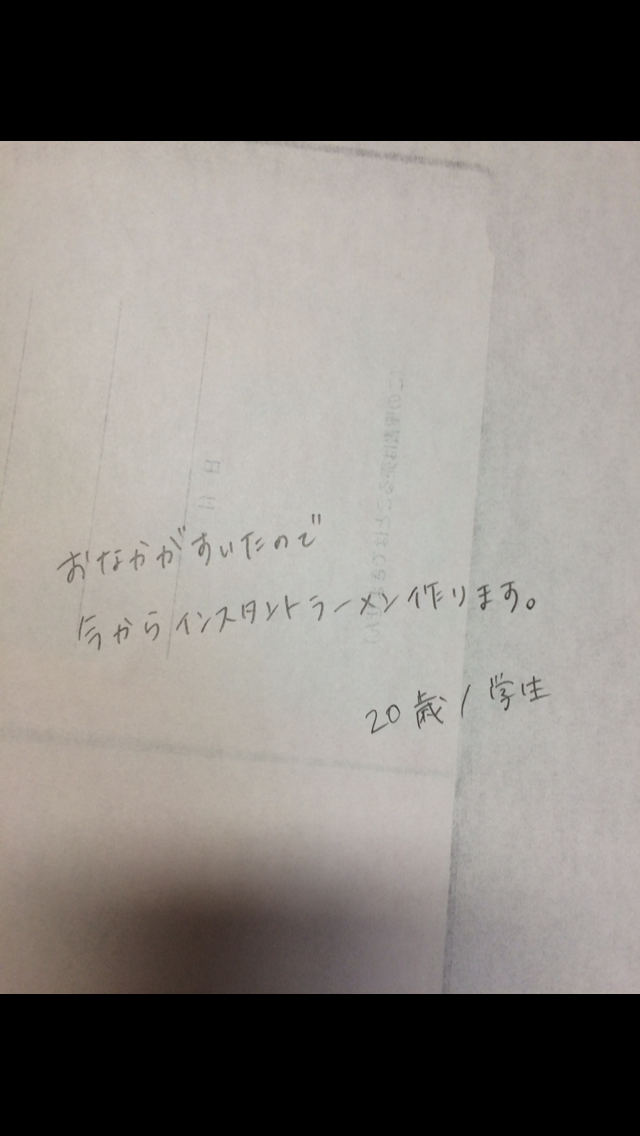 おなかがすいたので
今からインスタントラーメン作ります。
20歳/学生